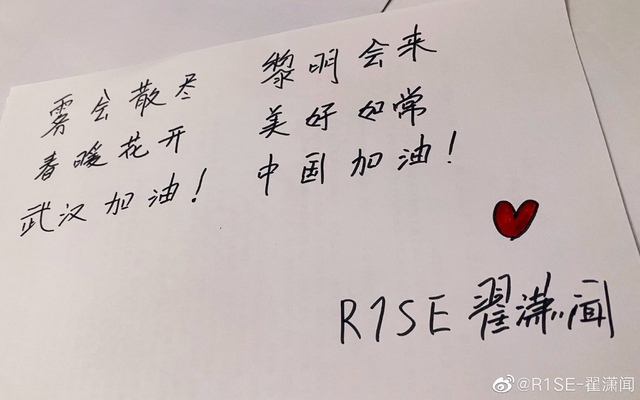 雾会散尽 黎明会来
春暖花开 美好如常
武汉加油！ 中国加油！
R1SE 翟潇闻
@R1SE-翟潇闻